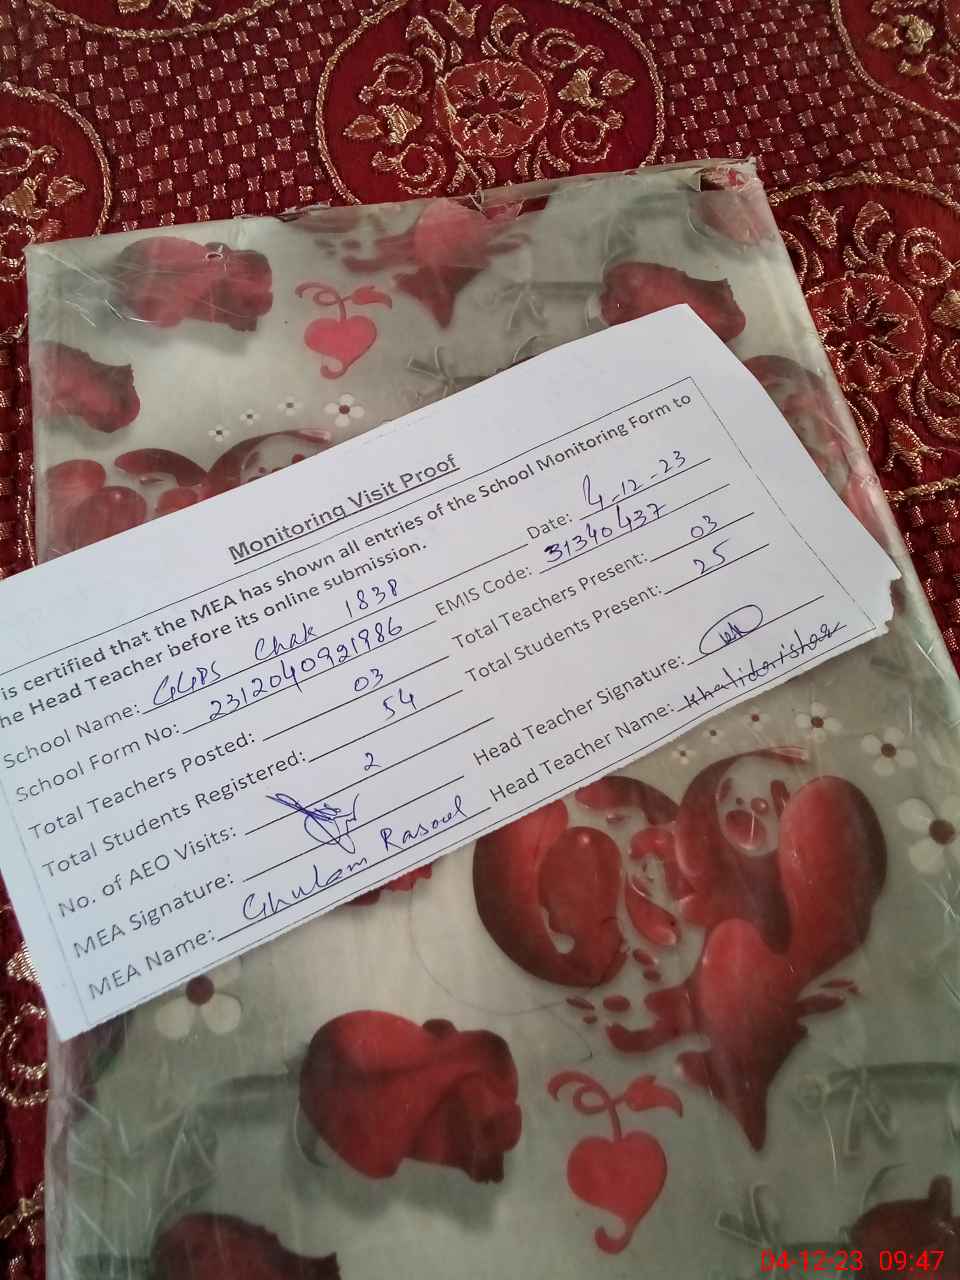 Monitoring Visit Proof
is certified that the MEA has shown all entries of the School Monitoring Form to
he Head Teacher before its online submission.
School Name: GGPS Chak 1838 Date: 4-12-23
School Form No: 2312040921986 EMIS Code: 31340437
Total Teachers Posted: 03 Total Teachers Present: 03
Total Students Registered: 54 Total Students Present: 25
No. of AEO Visits: 2
MEA Signature: Head Teacher Signature:
MEA Name: Ghulam Rasool Head Teacher Name:
04-12-23 09:47